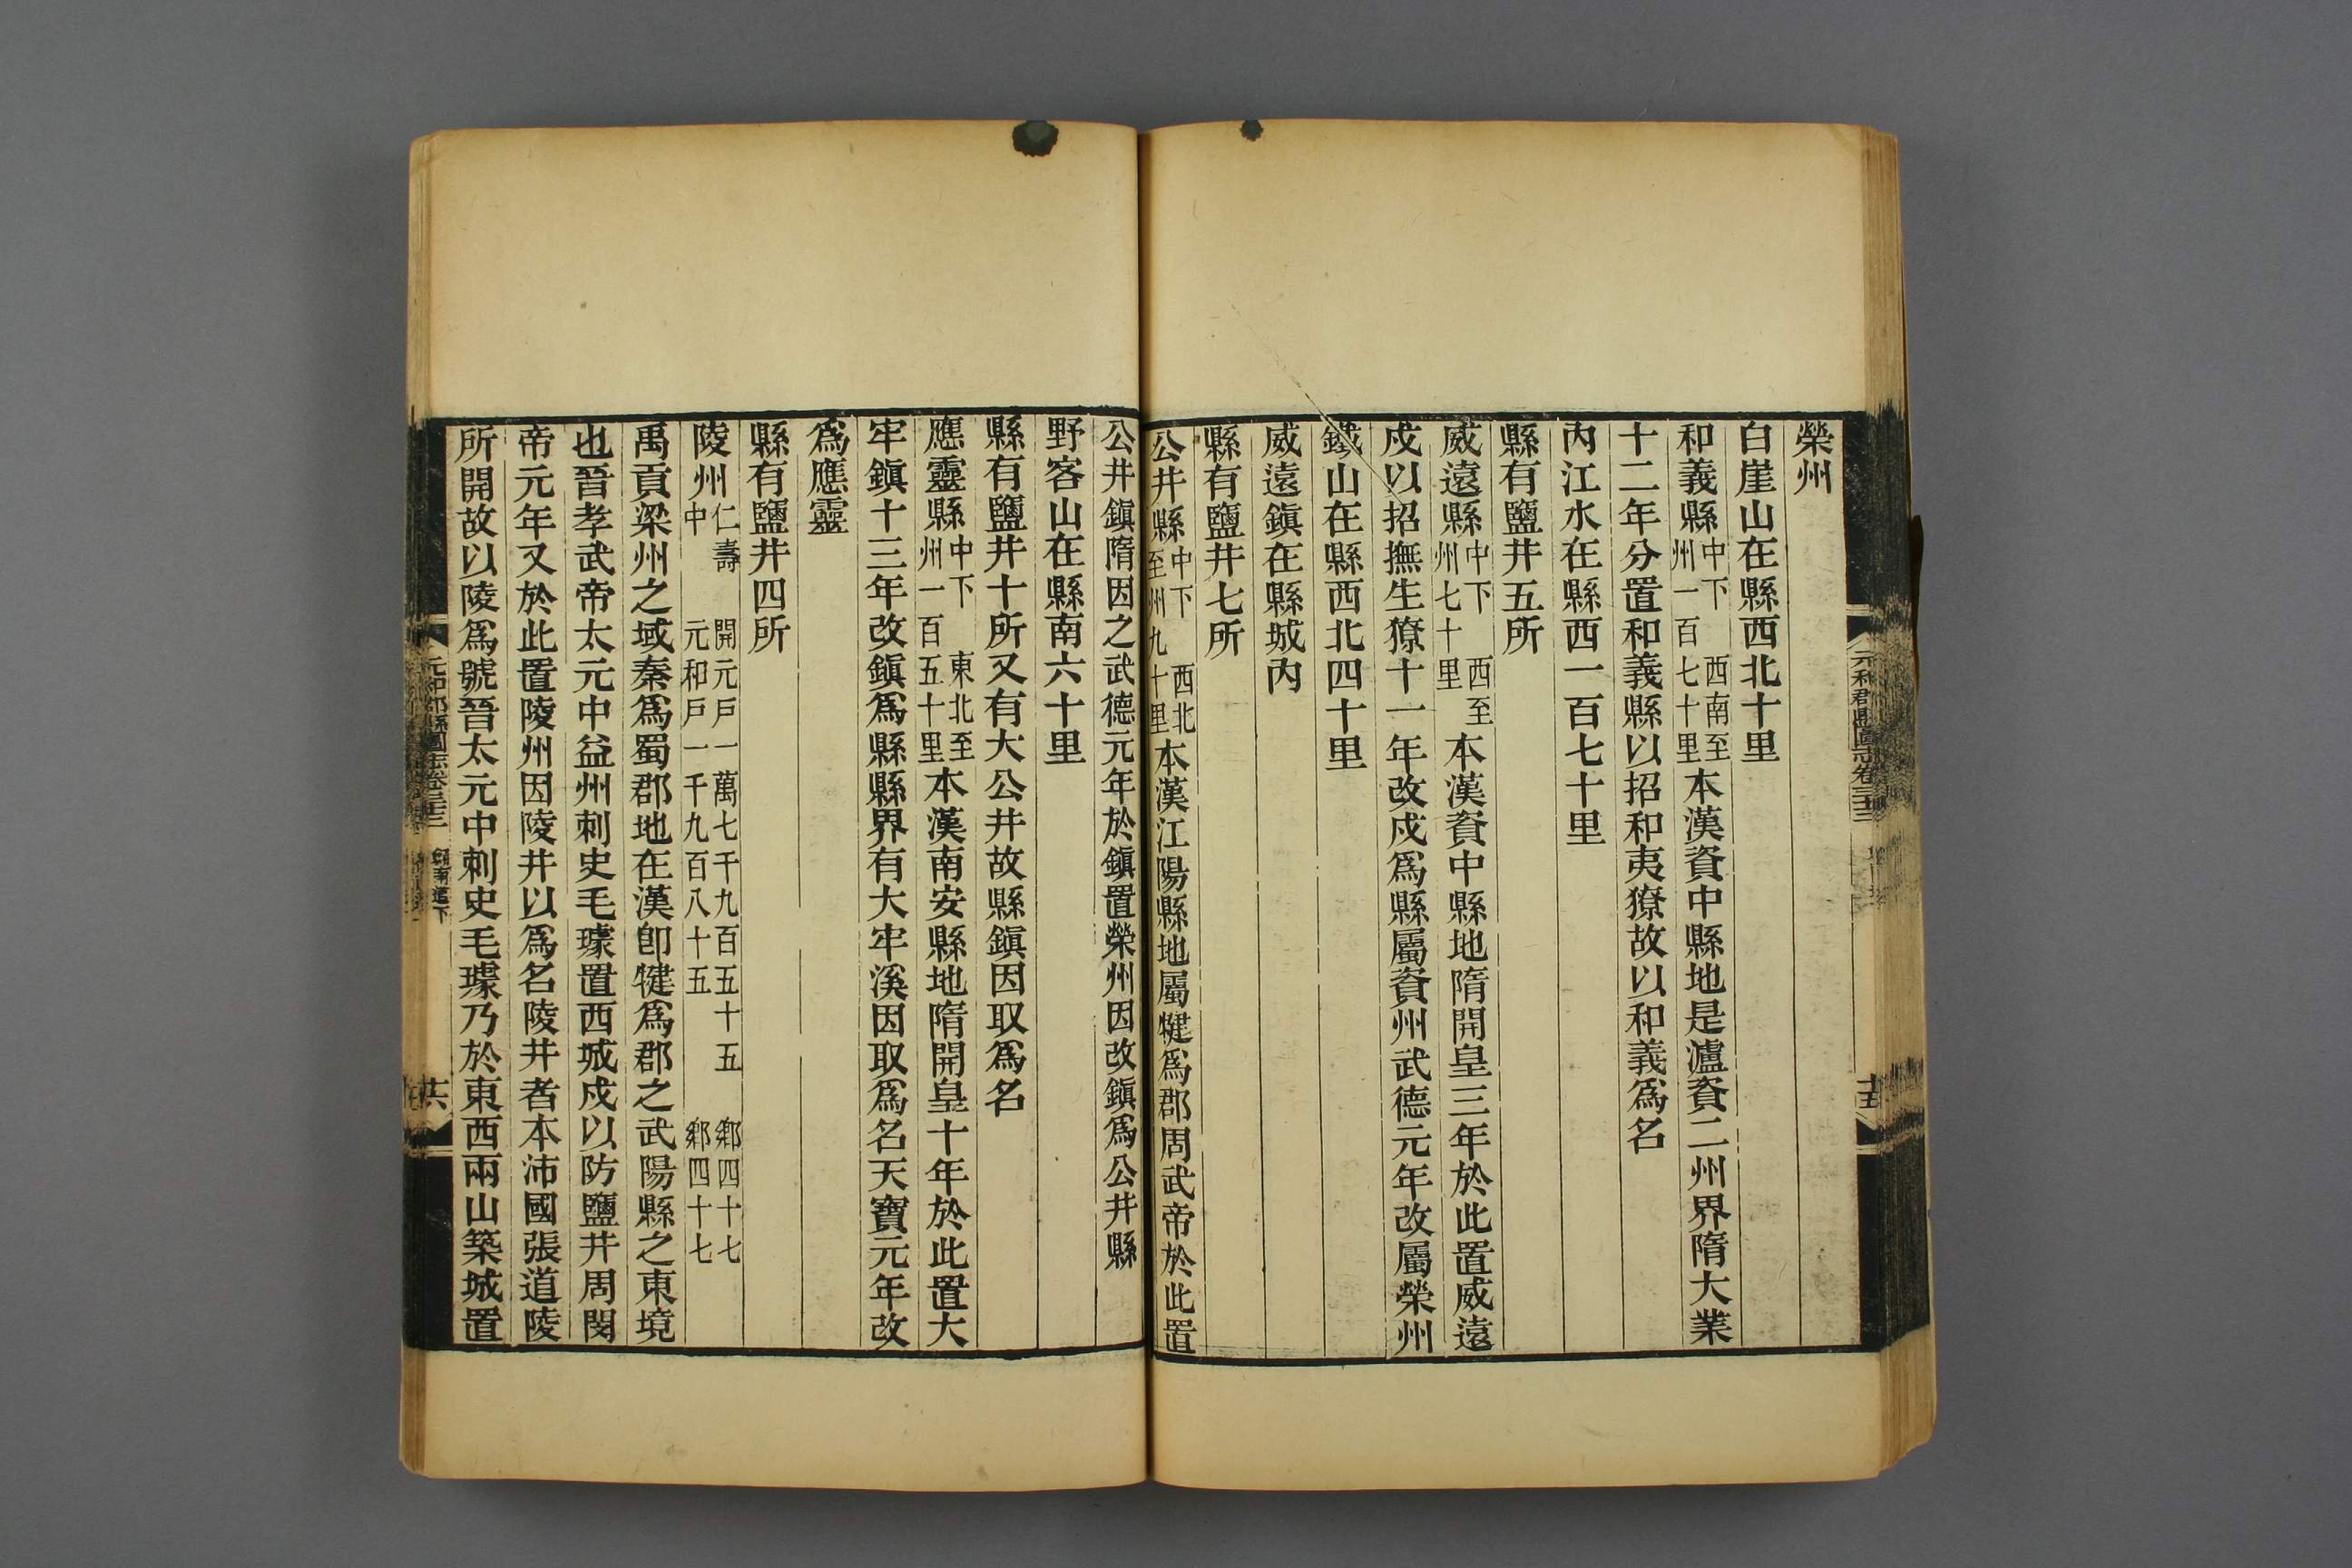 榮州
白崖山在縣西北十里
和義縣中下 西南至州一百七十里本漢資中縣地是瀘資二州界隋大業
十二年分置和義縣以招和夷獠故以和義爲名
內江水在縣西一百七十里
縣有鹽井五所
威遠縣中下 西至州七十里本漢資中縣地隋開皇三年於此置威遠
戍以招撫生獠十一年改戍爲縣屬資州武德元年改屬榮州
鐵山在縣西北四十里
威遠鎭在縣城內
縣有鹽井七所
公井縣中下 西北至州九十里本漢江陽縣地屬犍爲郡周武帝於此置
公井鎭隋因之武德元年於鎭置榮州因改鎭爲公井縣
野客山在縣南六十里
縣有鹽井十所又有大公井故縣鎭因取爲名
應靈縣中下 東北至州一百五十里本漢南安縣地隋開皇十年於此置大
牢鎭十三年改鎭爲縣縣界有大牢溪因取爲名天寶元年改
爲應靈
縣有鹽井四所
陵州仁壽中 開元戸一萬七千九百五十五 鄉四十七 元和戸一千九百八十五 鄉四十七
禹貢梁州之域秦爲蜀郡地在漢卽犍爲郡之武陽縣之東境
也晉孝武帝太元中益州刺史毛璩置西城戍以防鹽井周閔
帝元年又於此置陵州因陵井以爲名陵井者本沛國張道陵
所開故以陵爲號晉太元中刺史毛璩乃於東西兩山築城置
元和郡縣圖志卷三十三
十五
元和郡縣圖志卷三十三 劍南道下
十六